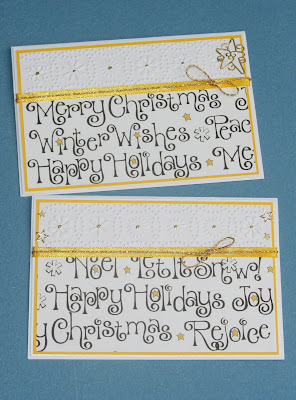 Merry Christmas
Winter Wishes Peace
Happy Holidays Me
Noel Let It Snow!
Happy Holidays Joy
y Christmas Rejoice